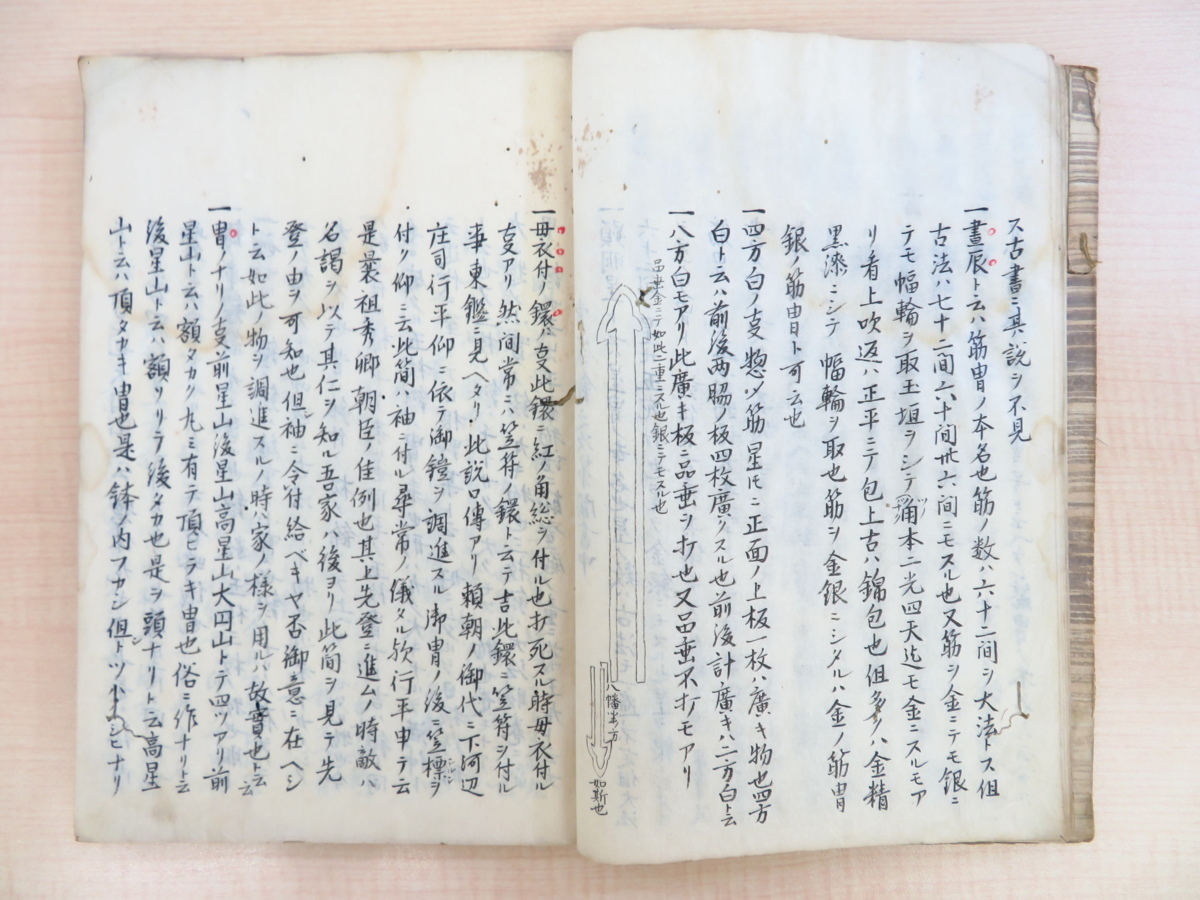 ス古書ニ其説ヲ不見
一晝辰ト云ハ筋冑ノ本名也筋ノ数ハ六十二間ヲ大法トス但
古法ハ七十二間六十間卅六間ニモスル也又筋ヲ金ニテモ銀ニ
テモ幅輪ヲ取玉垣ヲシテ 本二光四天迄モ金ニスルモア
リ看上吹返ハ正平ニテ包上古ハ錦包也但多クハ金精
黒漆ニシテ幅輪ヲ取也筋ヲ金銀ニシタルハ金ノ筋冑
銀ノ筋冑ト可云也
一四方白ノ叓惣ソ筋星ニ正面ノ上板一枚ハ廣キ物也四方
白ト云ハ前後両脇ノ板四枚廣クスル也前後計廣キハ二方白ト云
一八方白モアリ此廣キ板ニ品垂ヲ打也又品垂不打モアリ
品垂金ニテ如此二重ニスル也銀ニテモスル也
八幡 方
如斯也
一母衣付ノ鐶ノ叓此鐶ニ紅ノ角総ヲ付ル也打死スル時母衣付ル
叓アリ然間常ニハ笠符ノ鐶ト云テ吉此鐶ニ笠符ヲ付ル
事東鑑ニ見ヘタリ此説口傳アリ頼朝ノ御代ニ下河辺
庄司行平仰ニ依テ御鎧ヲ調進スル御冑ノ後ニ笠標ヲ
付ケリ仰ニ云此簡ハ袖ニ付ル尋常ノ儀タル欤行平申テ云
是曩祖秀郷朝臣ノ佳例也其上先登ニ進ムノ時敵ハ
名謁ヲ以テ其仁ヲ知ル吾家ハ後ヨリ此簡ヲ見テ先
登ノ由ヲ可知也但袖ニ令付給ベキヤ否御意ニ在ヘシ
ト云如此ノ物ヲ調進スルノ時家ノ様ヲ用ルハ故實也ト云云
一冑ノナリノ叓前星山後星山高星山大円山トテ四ツアリ前
星山ト云ハ額タカク丸ミ有テ頂ヒラキ冑也俗ニ作ナリト云
後星山ト云ハ額ソリテ後タカ也是ヲ頭ナリト云高星
山ト云ハ頂タカキ冑也是ハ鉢ノ内フカシ但トツ